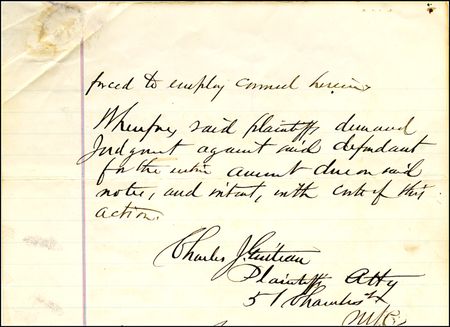 forced to employ counsel herein
Wherefore, said plaintiffs demand
Judgment against said defendant
for the entire amount due on said
notes, and interest, with costs of this
action.
Charles J. Guiteau
Plaintiffs Atty
51 Chambers St
N.Y.C.